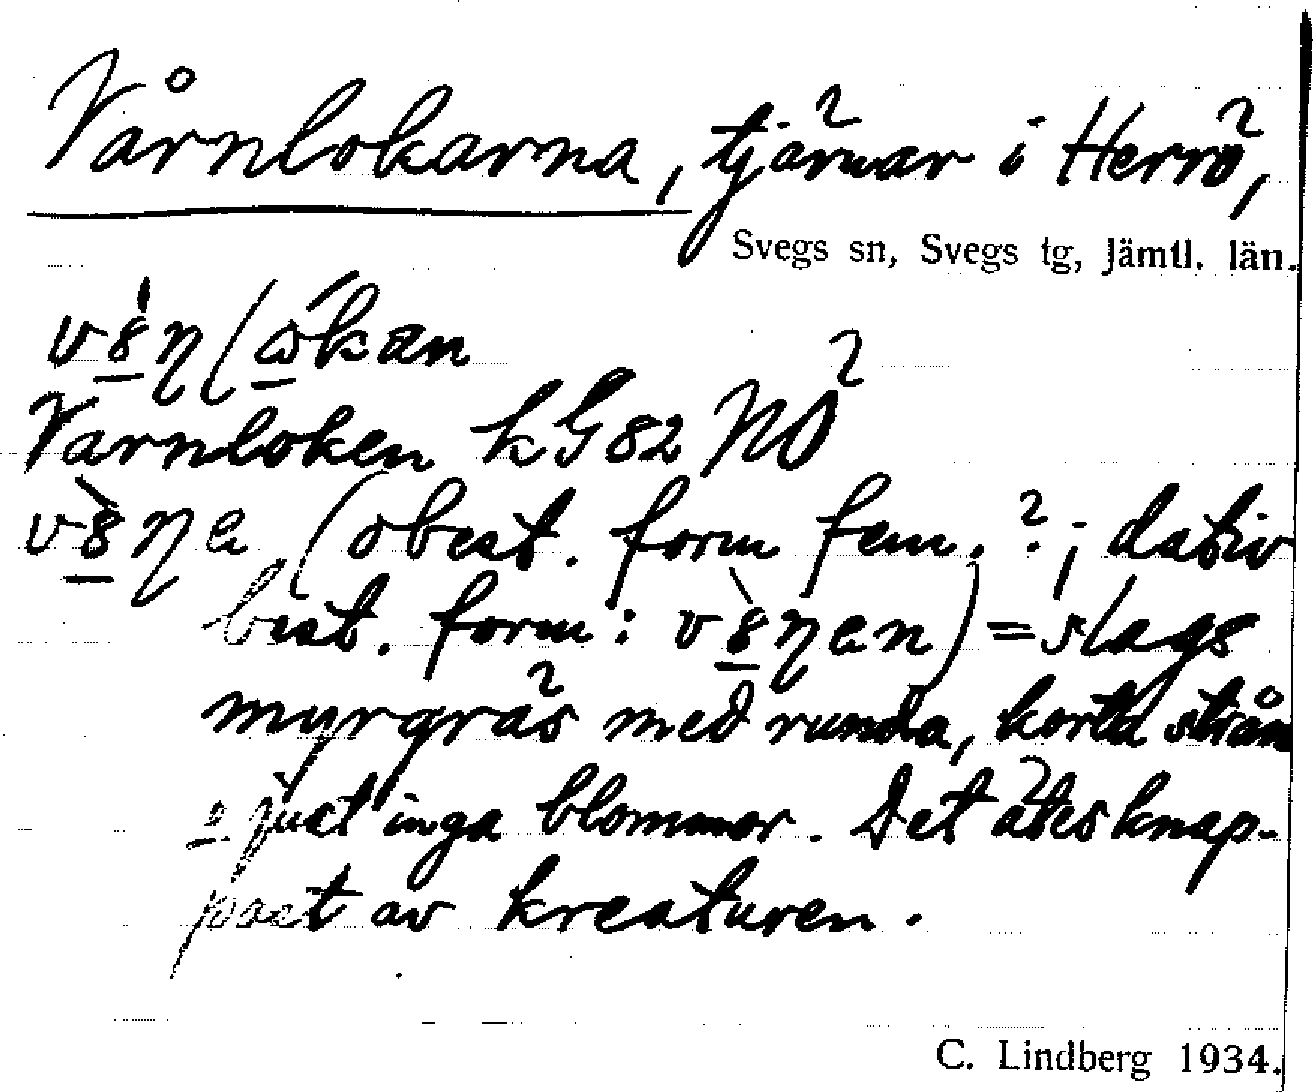 Vårnlokarna, tjärnar i Herrö,
Svegs sn, Svegs tg, Jämtl. län.
Varnloken kG82 NÖ
(obest. form fem. ?; dativ
best. form: ) = slags
myrgräs med runda, korta strån
o just inga blommor. Det ätes knap-
past av kreaturen.
C. Lindberg 1934.